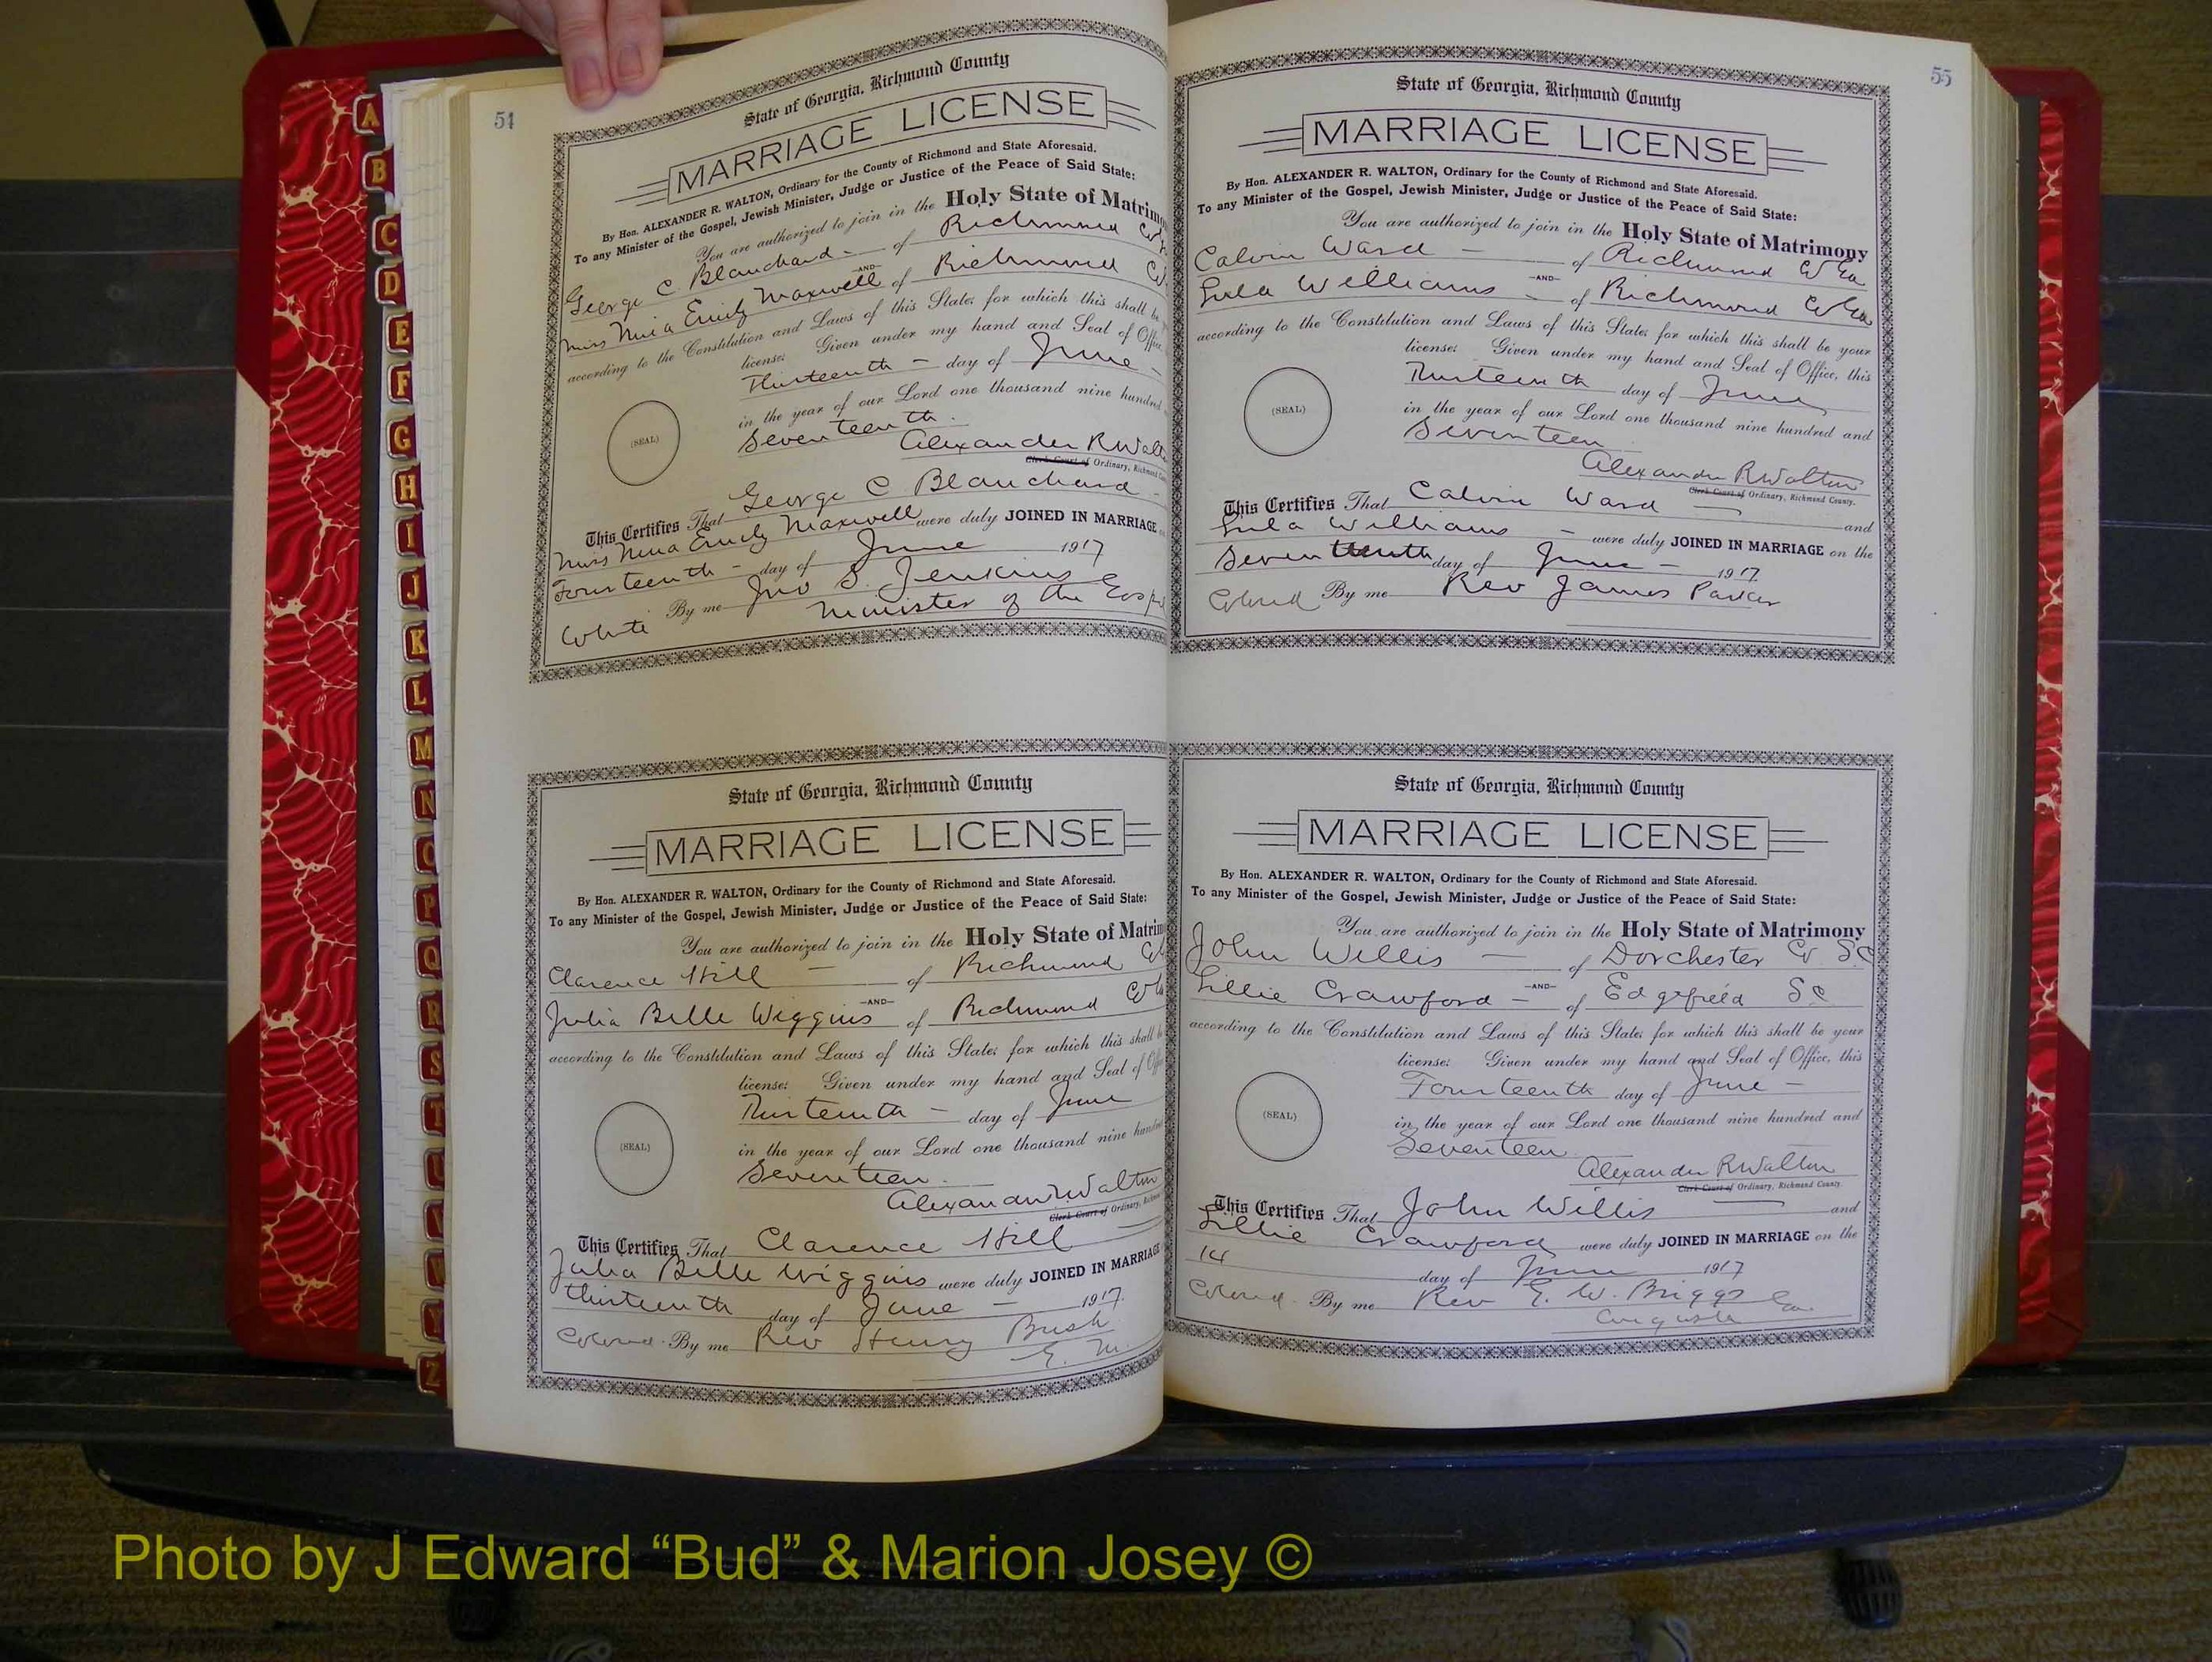 A
B
C
D
E
F
G
H
I
J
K
L
M
N
O
P
Q
R
S
T
U
V
W
Y
Z
54
State of Georgia, Richmond County
MARRIAGE LICENSE
By Hon. ALEXANDER R. WALTON, Ordinary for the County of Richmond and State Aforesaid.
To any Minister of the Gospel, Jewish Minister, Judge or Justice of the Peace of Said State:
You are authorized to join in the Holy State of Matrimo
George C Blanchard of Richmond Co
—AND—
Miss Nina Emily Maxwell of Richmond Co
according to the Constitution and Laws of this State; for which this shall be
license: Given under my hand and Seal of Office,
Thirteenth day of June
in the year of our Lord one thousand nine hundred
Seventeenth
(SEAL)
Alexander R Walt
Clerk Court of Ordinary, Richmond
This Certifies That George C Blanchard
Miss Nina Emily Maxwell were duly JOINED IN MARRIAGE
Fourteenth day of June 1917
By me Jno S. Jenkins
White Minister of the Gosp
State of Georgia, Richmond County
MARRIAGE LICENSE
By Hon. ALEXANDER R. WALTON, Ordinary for the County of Richmond and State Aforesaid.
To any Minister of the Gospel, Jewish Minister, Judge or Justice of the Peace of Said State:
You are authorized to join in the Holy State of Matrim
Clarence Hill of Richmond Co
—AND—
Julia Belle Wiggins of Richmond Co
according to the Constitution and Laws of this State; for which this shall be
license: Given under my hand and Seal of Off
Thirteenth day of June
in the year of our Lord one thousand nine hundre
Seventeen
(SEAL)
Alexander R Walton
Clerk Court of Ordinary, Richmo
This Certifies That Clarence Hill
Julia Belle Wiggins were duly JOINED IN MARRIAGE
thirteenth day of June 1917.
Colored. By me Rev Henry Bush
E. M.
55
State of Georgia, Richmond County
MARRIAGE LICENSE
By Hon. ALEXANDER R. WALTON, Ordinary for the County of Richmond and State Aforesaid.
To any Minister of the Gospel, Jewish Minister, Judge or Justice of the Peace of Said State:
You are authorized to join in the Holy State of Matrimony
Calvin Ward of Richmond Co Ga
—AND—
Lula Williams of Richmond Co Ga
according to the Constitution and Laws of this State; for which this shall be your
license: Given under my hand and Seal of Office, this
Thirteenth day of June
in the year of our Lord one thousand nine hundred and
Seventeen
(SEAL)
Alexander R Walton
Clerk Court of Ordinary, Richmond County.
This Certifies That Calvin Ward and
Lula Williams were duly JOINED IN MARRIAGE on the
Seventeenth day of June 1917.
Colored By me Rev James Parker
State of Georgia, Richmond County
MARRIAGE LICENSE
By Hon. ALEXANDER R. WALTON, Ordinary for the County of Richmond and State Aforesaid.
To any Minister of the Gospel, Jewish Minister, Judge or Justice of the Peace of Said State:
You are authorized to join in the Holy State of Matrimony
John Willis of Dorchester Co S.C
—AND—
Lillie Crawford of Edgefield S.C
according to the Constitution and Laws of this State; for which this shall be your
license: Given under my hand and Seal of Office, this
Fourteenth day of June
in the year of our Lord one thousand nine hundred and
Seventeen
(SEAL)
Alexander R Walton
Clerk Court of Ordinary, Richmond County.
This Certifies That John Willis and
Lillie Crawford were duly JOINED IN MARRIAGE on the
14 day of June 1917
Colored. By me Rev E. W. Briggs
Augusta Ga
Photo by J Edward “Bud” & Marion Josey ©